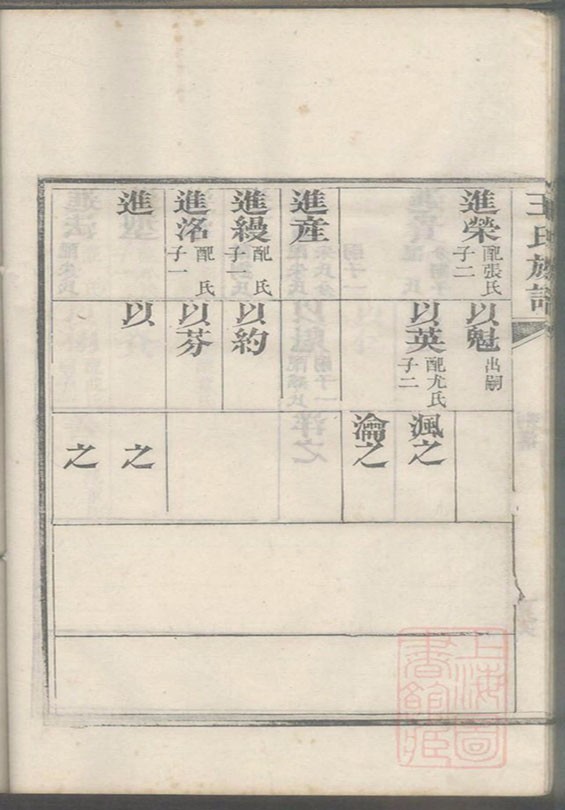 王氏族譜
進榮 配張氏 子二
進産
進縵 配 氏 子一
進洺 配 氏 子一
進
以魁 出嗣
以英 配尤氏 子二
以約
以芬
以
渢之
瀹之
之
之
上海圖書館藏